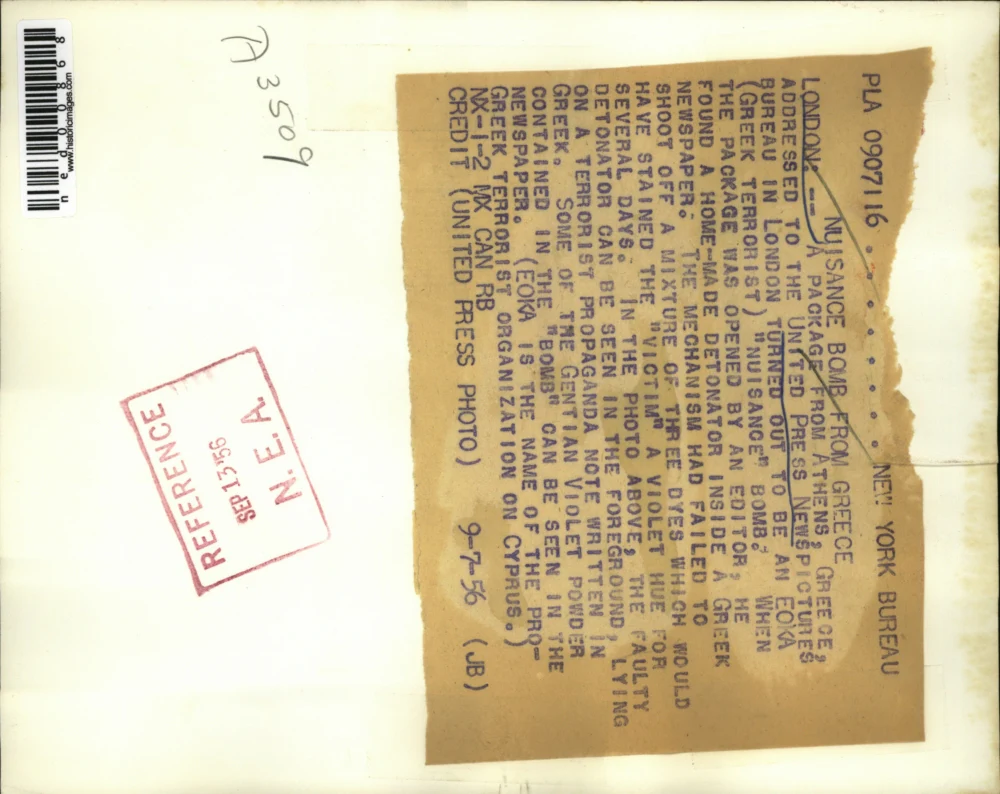 PLA 0907116 . . . . . . . . NEW YORK BUREAU
NUISANCE BOMB FROM GREECE
LONDON. -- A PACKAGE FROM ATHENS, GREECE,
ADDRESSED TO THE UNITED PRESS NEWSPICTURES
BUREAU IN LONDON TURNED OUT TO BE AN EOKA
(GREEK TERRORIST) "NUISANCE" BOMB. WHEN
THE PACKAGE WAS OPENED BY AN EDITOR, HE
FOUND A HOME-MADE DETONATOR INSIDE A GREEK
NEWSPAPER. THE MECHANISM HAD FAILED TO
SHOOT OFF A MIXTURE OF THREE DYES WHICH WOULD
HAVE STAINED THE "VICTIM" A VIOLET HUE FOR
SEVERAL DAYS. IN THE PHOTO ABOVE, THE FAULTY
DETONATOR CAN BE SEEN IN THE FOREGROUND, LYING
ON A TERRORIST PROPAGANDA NOTE WRITTEN IN
GREEK. SOME OF THE GENTIAN VIOLET POWDER
CONTAINED IN THE "BOMB" CAN BE SEEN IN THE
NEWSPAPER. (EOKA IS THE NAME OF THE PRO-
GREEK TERRORIST ORGANIZATION ON CYPRUS.)
NX-1-2 MX CAN RB
CREDIT (UNITED PRESS PHOTO) 9-7-56 (JB)
REFERENCE
SEP 13 '56
N. E. A.
A 3509
www.historicimages.com
ned00868